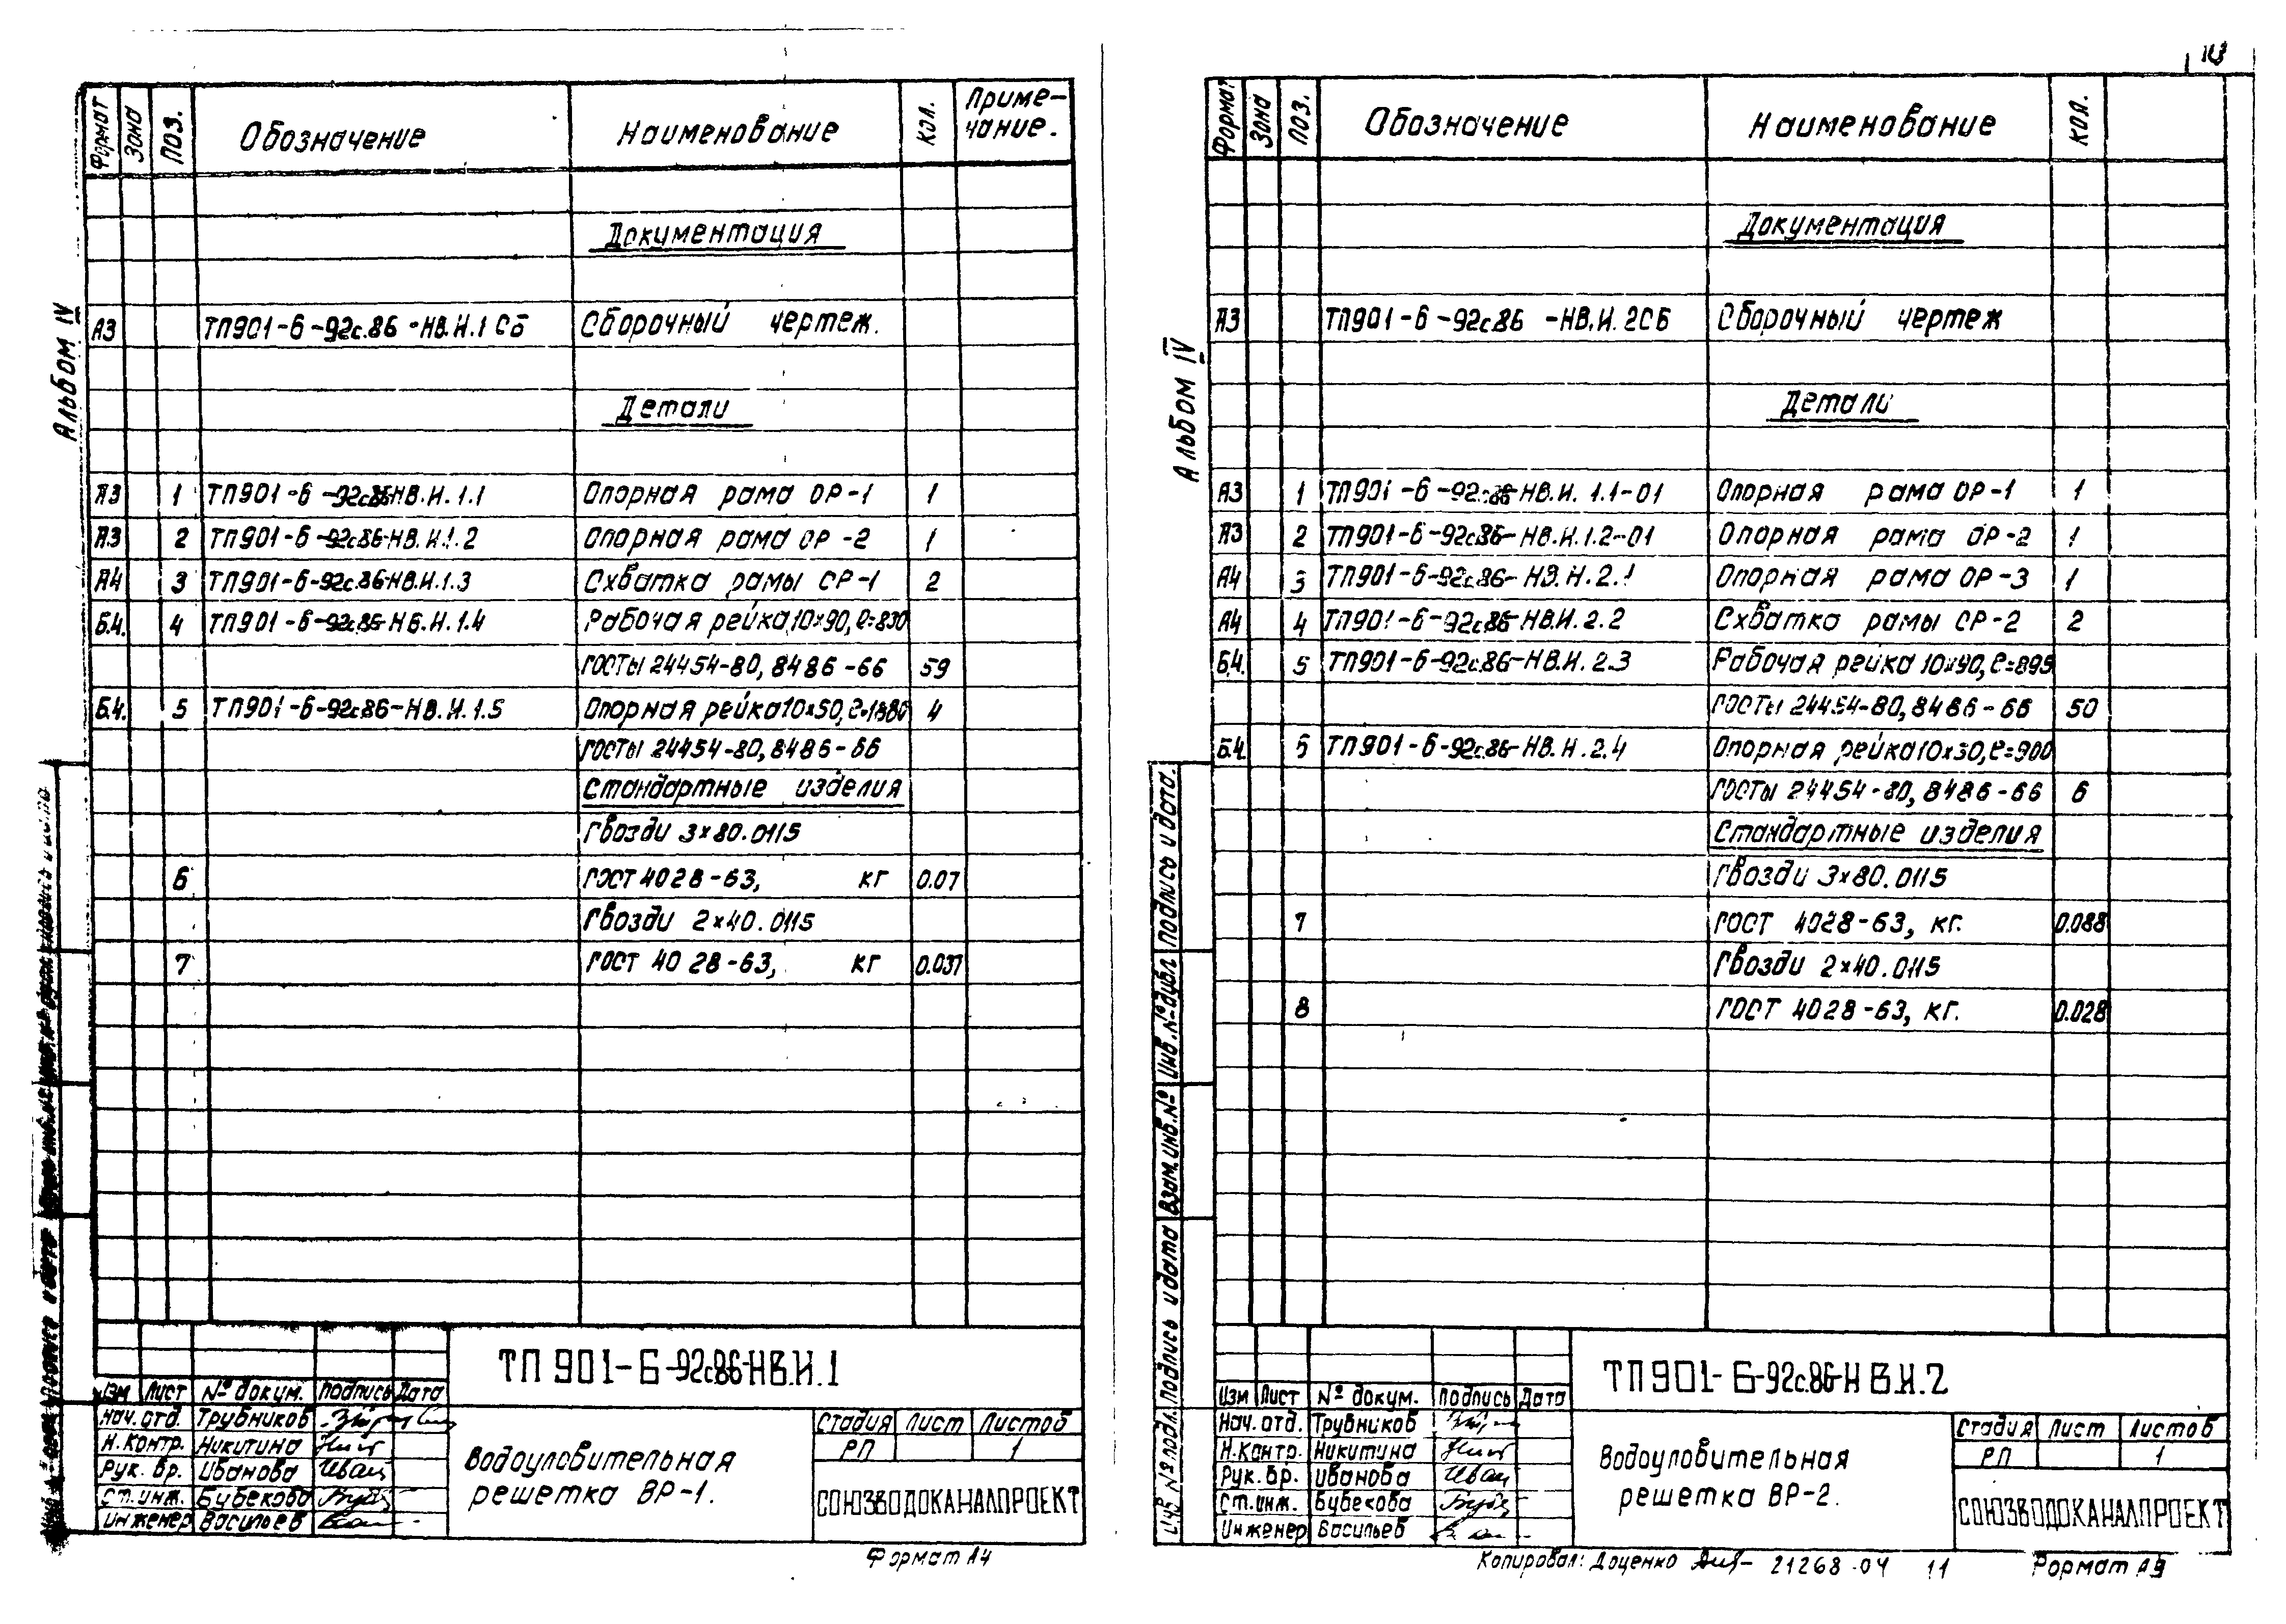 Формат Зона ПОЗ. Обозначение Наименование Кол. Приме-
чание.
Документация
А3 ТП901-6-92с.86-НВ.И.1 СБ Сборочный чертеж.
Детали
А3 1 ТП901-6-92с.86-НВ.И.1.1 Опорная рама ОР-1 1
А3 2 ТП901-6-92с.86-НВ.И.1.2 Опорная рама ОР-2 1
А4 3 ТП901-6-92с.86-НВ.И.1.3 Схватка рамы СР-1 2
Б.4. 4 ТП901-6-92с.86-НВ.И.1.4 Рабочая рейка 10×90, ℓ=830
ГОСТы 24454-80, 8486-66 59
Б.4. 5 ТП901-6-92с.86-НВ.И.1.5 Опорная рейка 10×50, ℓ=1880 4
ГОСТы 24454-80, 8486-66
Стандартные изделия
Гвозди 3×80.0115
6 ГОСТ 4028-63, кг 0.07
Гвозди 2×40.0115
7 ГОСТ 4028-63, кг 0.037
Альбом IV
ТП 901-6-92с.86-НВ.И.1
Изм Лист № докум. Подпись Дата
Нач.отд. Трубников
Н.контр. Никитина
Рук. бр. Иванова
Ст.инж. Бубекова
Инженер Васильев
Водоуловительная
решетка ВР-1.
Стадия Лист Листов
РП 1
СОЮЗВОДОКАНАЛПРОЕКТ
Формат А4
Формат Зона ПОЗ. Обозначение Наименование Кол.
Документация
А3 ТП901-6-92с.86-НВ.И.2СБ Сборочный чертеж
Детали
А3 1 ТП901-6-92с.86-НВ.И.1.1-01 Опорная рама ОР-1 1
А3 2 ТП901-6-92с.86-НВ.И.1.2-01 Опорная рама ОР-2 1
А4 3 ТП901-6-92с.86-НВ.И.2.1 Опорная рама ОР-3 1
А4 4 ТП901-6-92с.86-НВ.И.2.2 Схватка рамы СР-2 2
Б.4. 5 ТП901-6-92с.86-НВ.И.2.3 Рабочая рейка 10×90, ℓ=895
ГОСТы 24454-80, 8486-66 50
Б.4 6 ТП901-6-92с.86-НВ.И.2.4 Опорная рейка 10×30, ℓ=900
ГОСТы 24454-80, 8486-66 6
Стандартные изделия
Гвозди 3×80.0115
7 ГОСТ 4028-63, кг. 0.088
Гвозди 2×40.0115
8 ГОСТ 4028-63, кг. 0.028
Альбом IV
Подпись и дата.
Инв.№ дубл.
Взам.инв.№
Подпись и дата
Инв № подл.
ТП901-6-92с.86-НВ.И.2
Изм Лист № докум. Подпись Дата
Нач.отд. Трубников
Н.контр. Никитина
Рук. бр. Иванова
Ст.инж. Бубекова
Инженер Васильев
Водоуловительная
решетка ВР-2.
Стадия Лист Листов
РП 1
СОЮЗВОДОКАНАЛПРОЕКТ
Копировал: Доценко 21268-04 11 Формат А3